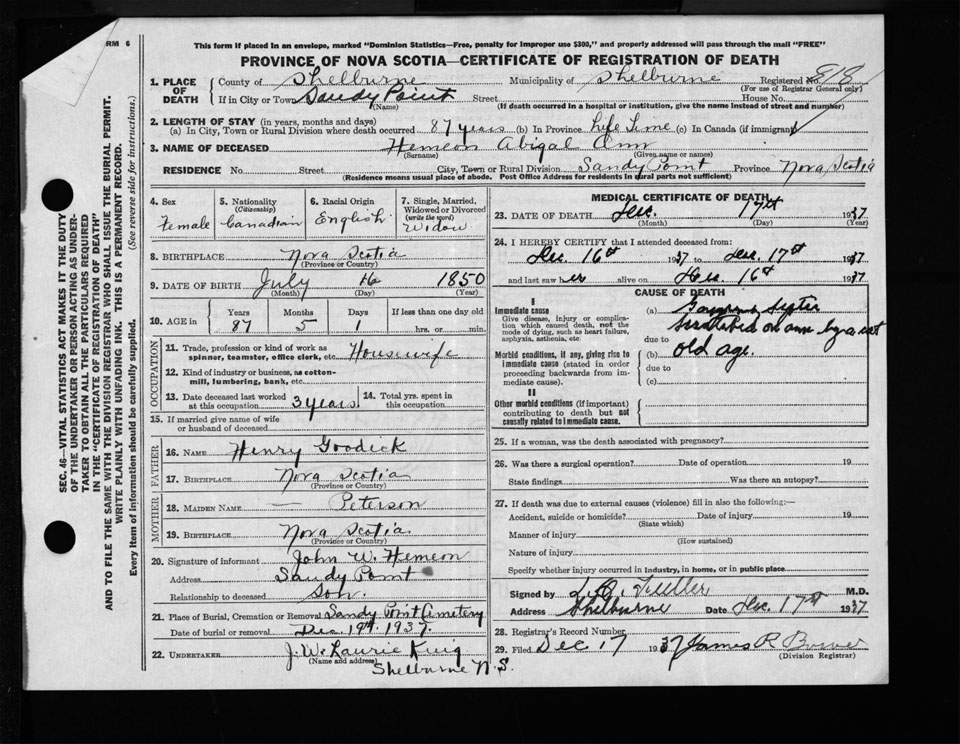 RM 6
This form if placed in an envelope, marked "Dominion Statistics—Free, penalty for improper use $300," and properly addressed will pass through the mail "FREE"
PROVINCE OF NOVA SCOTIA—CERTIFICATE OF REGISTRATION OF DEATH
1. PLACE OF DEATH
County of Shelburne Municipality of Shelburne Registered No. 818
(For use of Registrar General only)
If in City or Town Sandy Point Street House No.
(Name) (If death occurred in a hospital or institution, give the name instead of street and number)
2. LENGTH OF STAY (in years, months and days)
(a) In City, Town or Rural Division where death occurred 87 years (b) In Province Life Time (c) In Canada (if immigrant)
3. NAME OF DECEASED Hemeon Abigal Ann
(Surname) (Given name or names)
RESIDENCE No. Street City, Town or Rural Division Sandy Point Province Nova Scotia
(Residence means usual place of abode. Post Office Address for residents in rural parts not sufficient)
4. Sex
Female
5. Nationality
(Citizenship)
Canadian
6. Racial Origin
English
7. Single, Married, Widowed or Divorced
(write the word)
Widow
8. BIRTHPLACE Nova Scotia
(Province or Country)
9. DATE OF BIRTH July 16 1850
(Month) (Day) (Year)
10. AGE in
Years Months Days If less than one day old
87 5 1 hrs. or min.
OCCUPATION
11. Trade, profession or kind of work as spinner, teamster, office clerk, etc. Housewife
12. Kind of industry or business, as cotton-mill, lumbering, bank, etc.
13. Date deceased last worked at this occupation 3 years
14. Total yrs. spent in this occupation
15. If married give name of wife or husband of deceased
FATHER
16. NAME Henry Goodick
17. BIRTHPLACE Nova Scotia
(Province or Country)
MOTHER
18. MAIDEN NAME — Peterson
19. BIRTHPLACE Nova Scotia
(Province or Country)
20. Signature of informant John W. Hemeon
Address Sandy Point
Relationship to deceased Son
21. Place of Burial, Cremation or Removal Sandy Point Cemetery
Date of burial or removal Dec. 19th 1937
22. UNDERTAKER J. W. Laurie King
(Name and address) Shelburne N.S.
MEDICAL CERTIFICATE OF DEATH
23. DATE OF DEATH Dec. 17th 1937
(Month) (Day) (Year)
24. I HEREBY CERTIFY that I attended deceased from:
Dec. 16th 1937 to Dec. 17th 1937
and last saw her alive on Dec. 16th 1937
CAUSE OF DEATH
I
Immediate cause
Give disease, injury or complication which caused death, not the mode of dying, such as heart failure, asphyxia, asthenia, etc.
(a)
on arm by a cat
due to
Morbid conditions, if any, giving rise to immediate cause (stated in order proceeding backwards from immediate cause).
(b) old age.
due to
(c)
II
Other morbid conditions (if important) contributing to death but not causally related to immediate cause.
25. If a woman, was the death associated with pregnancy?
26. Was there a surgical operation? Date of operation 19
State findings Was there an autopsy?
27. If death was due to external causes (violence) fill in also the following:—
Accident, suicide or homicide? Date of injury 19
(State which)
Manner of injury
(How sustained)
Nature of injury
Specify whether injury occurred in industry, in home, or in public place
Signed by M.D.
Address Shelburne Date Dec. 17th 1937
28. Registrar's Record Number
29. Filed Dec 17 1937 James R
(Division Registrar)
SEC. 46—VITAL STATISTICS ACT MAKES IT THE DUTY
OF THE UNDERTAKER OR PERSON ACTING AS UNDER-
TAKER TO OBTAIN ALL THE PARTICULARS REQUIRED
IN THE "CERTIFICATE OF REGISTRATION OF DEATH"
AND TO FILE THE SAME WITH THE DIVISION REGISTRAR WHO SHALL ISSUE THE BURIAL PERMIT.
WRITE PLAINLY WITH UNFADING INK. THIS IS A PERMANENT RECORD.
Every item of information should be carefully supplied. (See reverse side for instructions.)